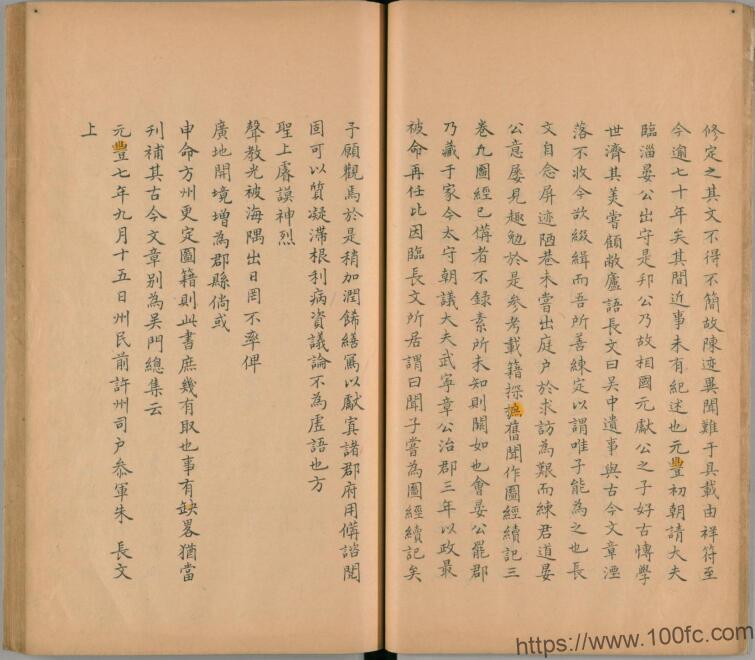 修定之其文不得不簡故陳迹異聞難于具載由祥符至
今逾七十年矣其間近事未有紀述也元豐初朝請大夫
臨淄晏公出守是邦公乃故相國元獻公之子好古博學
世濟其美嘗顧敝廬語長文曰吳中遺事與古今文章湮
落不收今欲綴緝而吾所善練定以謂唯子能為之也長
文自念屏迹陋巷未嘗出庭户於求訪為艱而練君道晏
公意屢見趣勉於是參考載籍探摭舊聞作圖經續記三
卷凡圖經已備者不錄素所未知則闕如也會晏公罷郡
乃藏于家今太守朝議大夫武寧章公治郡三年以政最
被命再任比因臨長文所居謂曰聞子嘗為圖經續記矣
予願觀焉於是稍加潤飾繕寫以獻寘諸郡府用備諮閱
固可以質凝滯根利病資議論不為虛語也方
聖上睿謨神烈
聲教光被海隅出日罔不率俾
廣地開境增為郡縣倘或
申命方州更定圖籍則此書庶幾有取也事有缺畧猶當
刊補其古今文章別為吳門總集云
元豐七年九月十五日州民前許州司户叅軍朱 長文
上
https://www.100fc.com